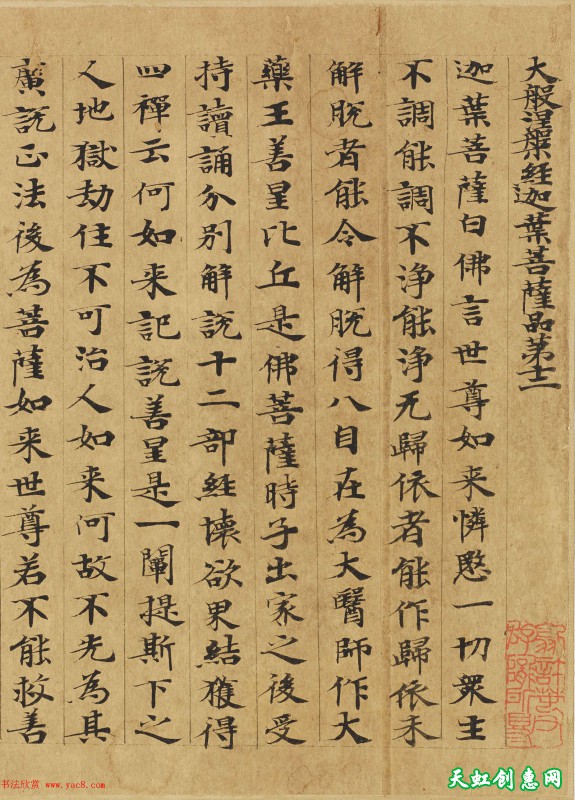 大般涅槃経迦葉菩薩品第十二
迦葉菩薩白佛言世尊如来憐愍一切衆生
不調能調不浄能浄无歸依者能作歸依未
解脫者能令解脫得八自在為大醫師作大
藥王善星比丘是佛菩薩時子出家之後受
持讀誦分別解說十二部経壞欲果結獲得
四禪云何如来記說善星是一闡提斯下之
人地獄劫住不可治人如来何故不先為其
廣說正法後為菩薩如来世尊若不能救善
书法欣赏 www.yac8.com
天虹创惠网